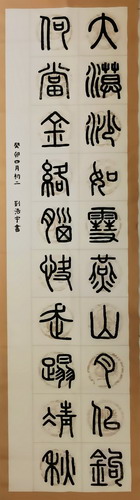 大漠沙如雪燕山月似鉤
何當金絡腦快走蹋清秋
癸卯四月初二 刘浩宇書